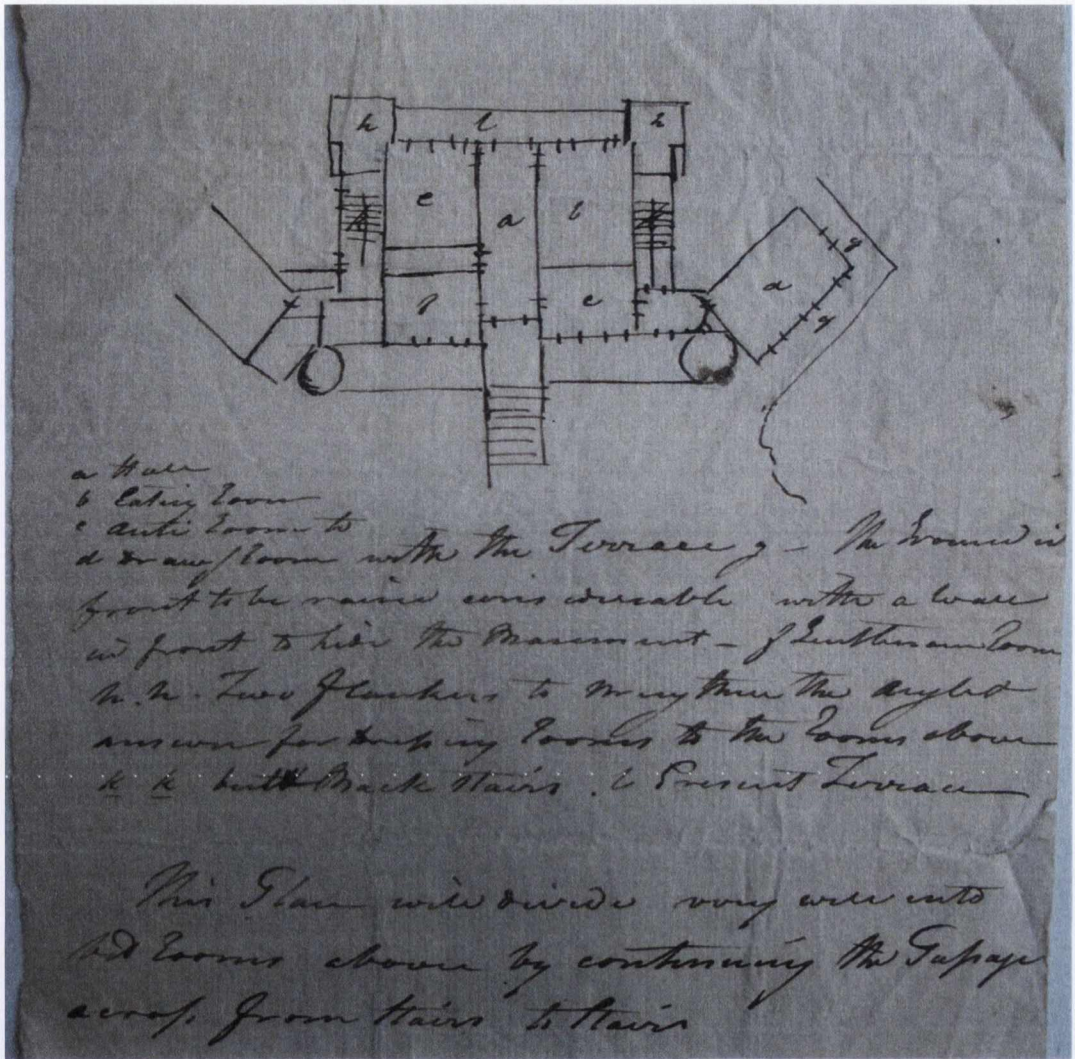 h l h
e a b
k k
f c
d g
g
a Hall
b Eating Room
c anti Room to
d Drawg Room with the Terrace g - The Ground in
front to be raised considerable with a wall
in front to hide the Basement - f Gentleman Room
h.h. Two flankers to the angles
answer for Dressing Rooms to the Rooms above
k k Back Stairs . l Present Terrace
This Plan will divide very well into
bed Rooms above by continuing the Passage
across from Stairs to Stairs